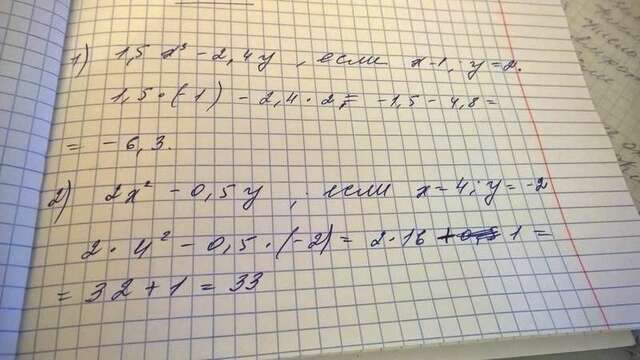 1) 1,5 x³ - 2,4 y , если x-1; y=2.
1,5 · (-1) - 2,4 · 2 = -1,5 - 4,8 =
= -6,3.
2) 2x² - 0,5 y ; если x=4; y=-2
2 · 4² - 0,5 · (-2) = 2 · 16 1 =
= 32 + 1 = 33